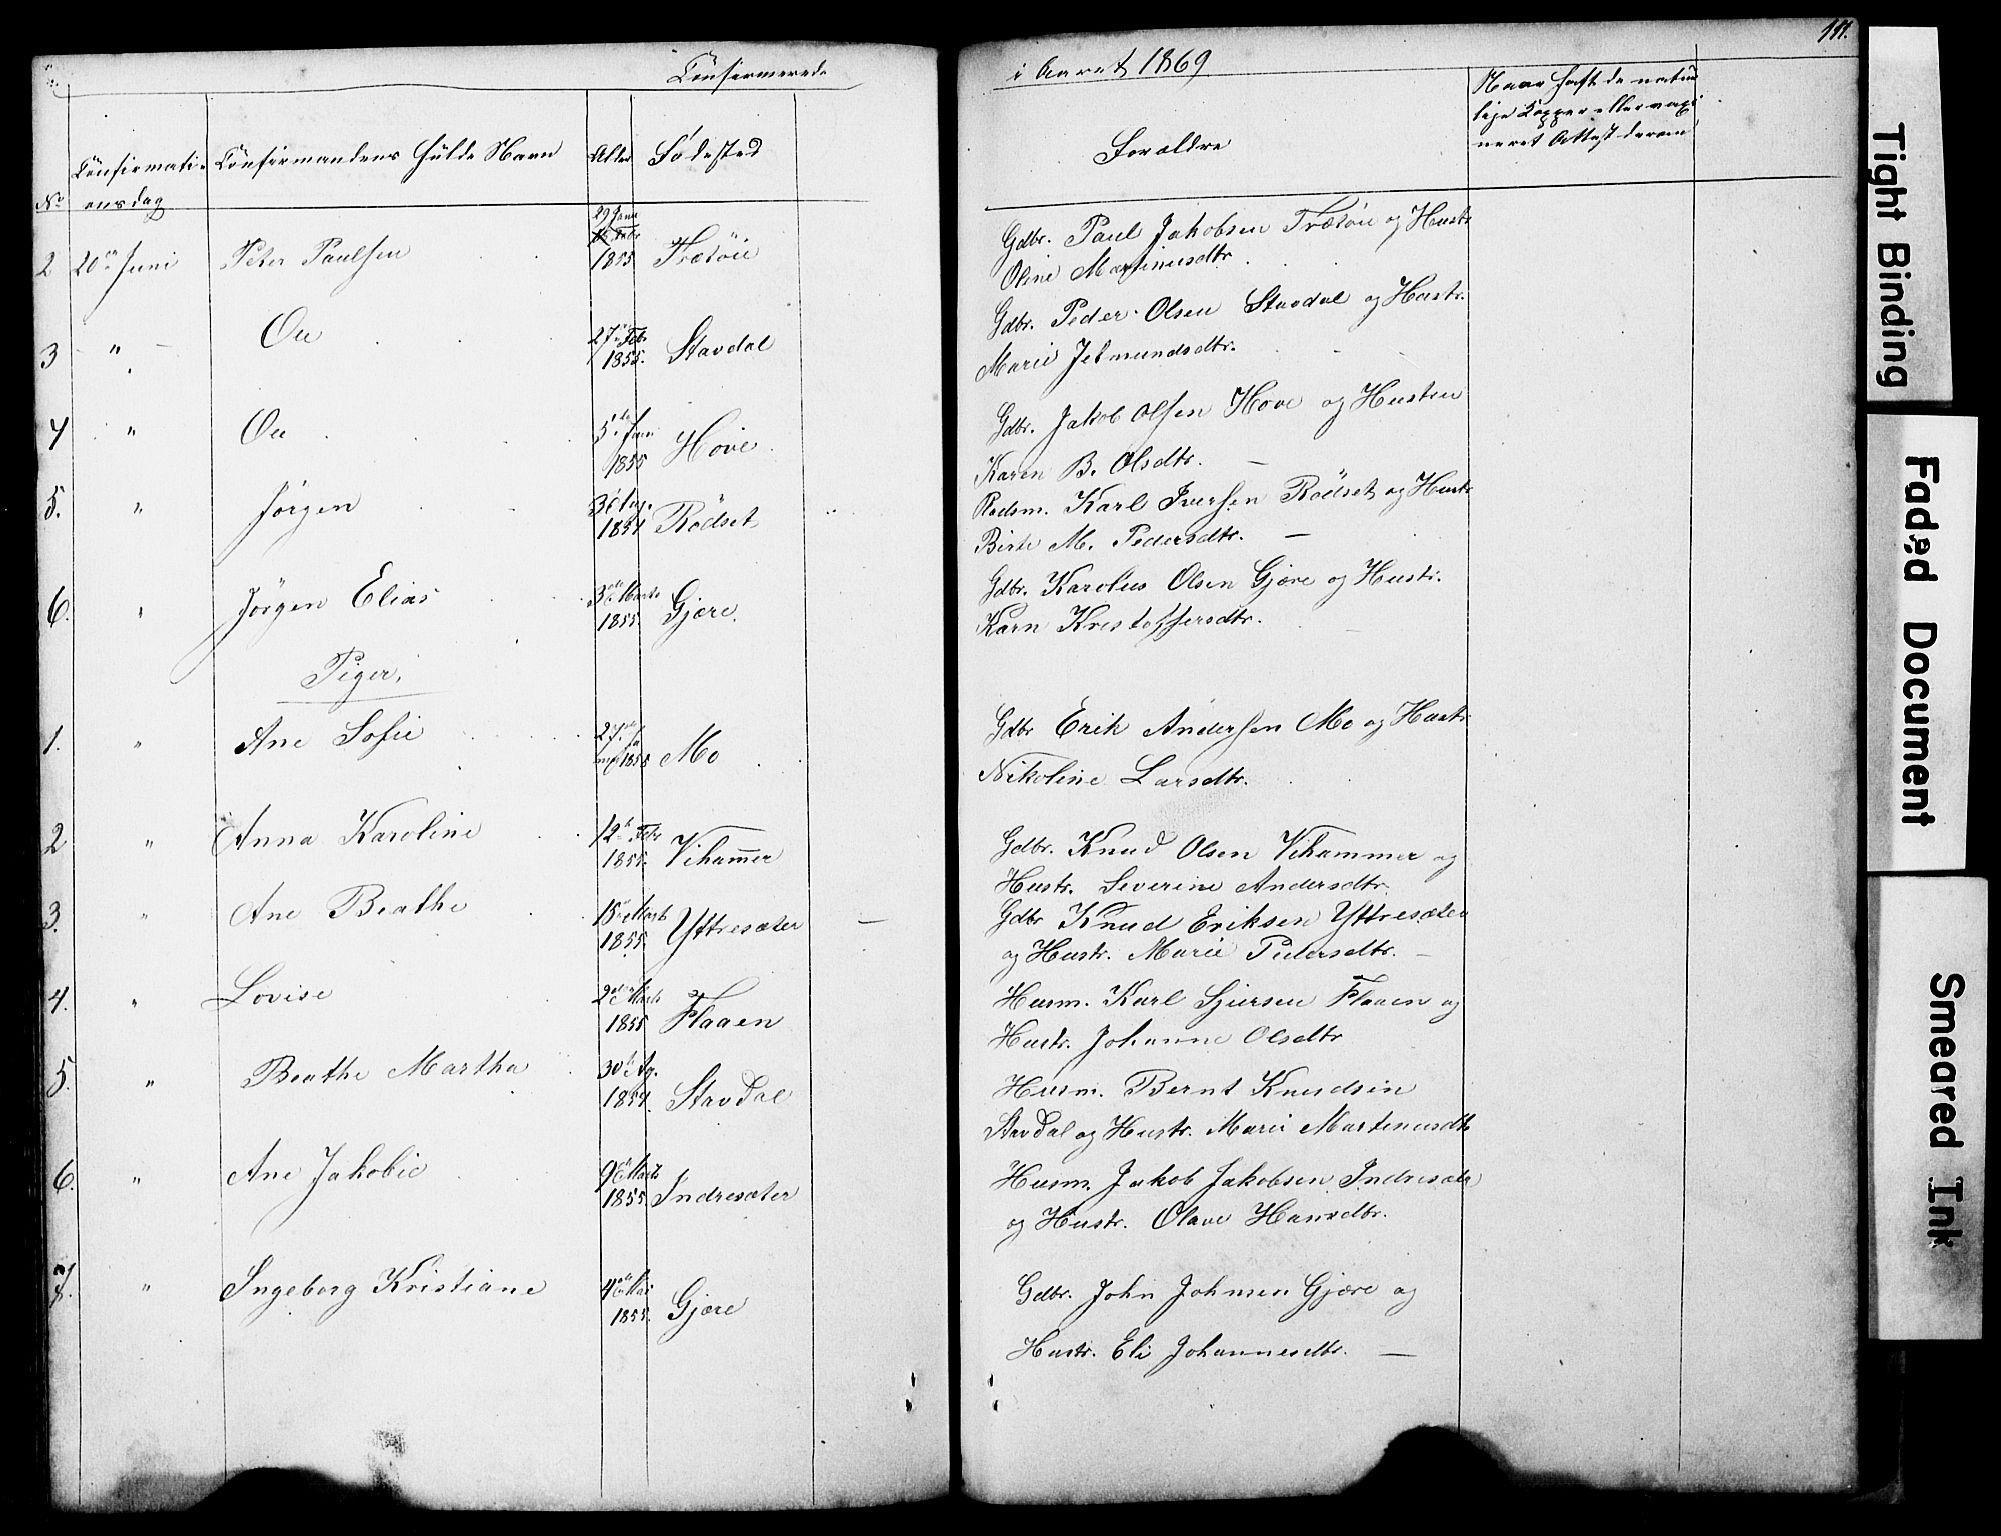 Confirmerede i Aaret 1869
111.
No
Confirmationsdag
Confirmandens fulde Navn
Alder
Fødested
Forældre
Naar haft de naturlige Kopper eller vaxineret Attest derom
2 20de Juni Peter Paulsen 29 Janr 1855 Trætøii Gdbr. Paul Jakobsen Trætøii og Hustr.
Oline Martinusdtr.
3 " Ole 27de Febr 1855. Stavdal Gdbr. Peder Olsen Stavdal og Hustr.
Marie Jetmundsdtr.
4 " Ole 5te Janr 1855 Hove. Gdbr. Jakob Olsen Hove og Hustru
Karen B. Olsdtr. —
5. " Jørgen 1854 Rødset Karl Iversen Rødset og Hustr
Birte M. Pedersdtr. —
6. " Jørgen Elias 3de Marts 1855. Gjære. Gdbr. Karolus Olsen Gjære og Hustr.
Karn Kristoffersdtr.
Piger.
1. " Ane Sofie 27de 1855 Mo Gdbr Erik Andersen Mo og Hustr.
Nikoline Larsdtr.
2 " Anna Karoline 12te Febr 1855. Vihammer Gdbr. Knud Olsen Vihammer og
Hustr. Severine Andersdtr.
3. " Ane Beathe 15de Marts 1855. Yttresæter — Gdbr Knud Eriksen Yttresæter
og Hustr. Marie Pedersdtr. —
4. " Lovise 2den Marts 1855 Flaaen Husm. Karl Sjursen Flaaen og
Hustr. Johanne Olsdtr
5. " Beathe Martha 30te Ag. 1854. Stavdal Husm. Bernt Knudsen
Stavdal og Hustr. Marie Martinusdtr
6. " Ane Jakobie 9de Marts 1855. Indresæter Husm. Jakob Jakobsen Indresætr
og Hustr. Olave Hansdtr.
7. " Ingeborg Kristiane 4de Mai 1855. Gjære Gdbr. John Johnsen Gjære og
Hustr. Eli Johannesdtr. —
Tight Binding
Faded Document
Smeared Ink